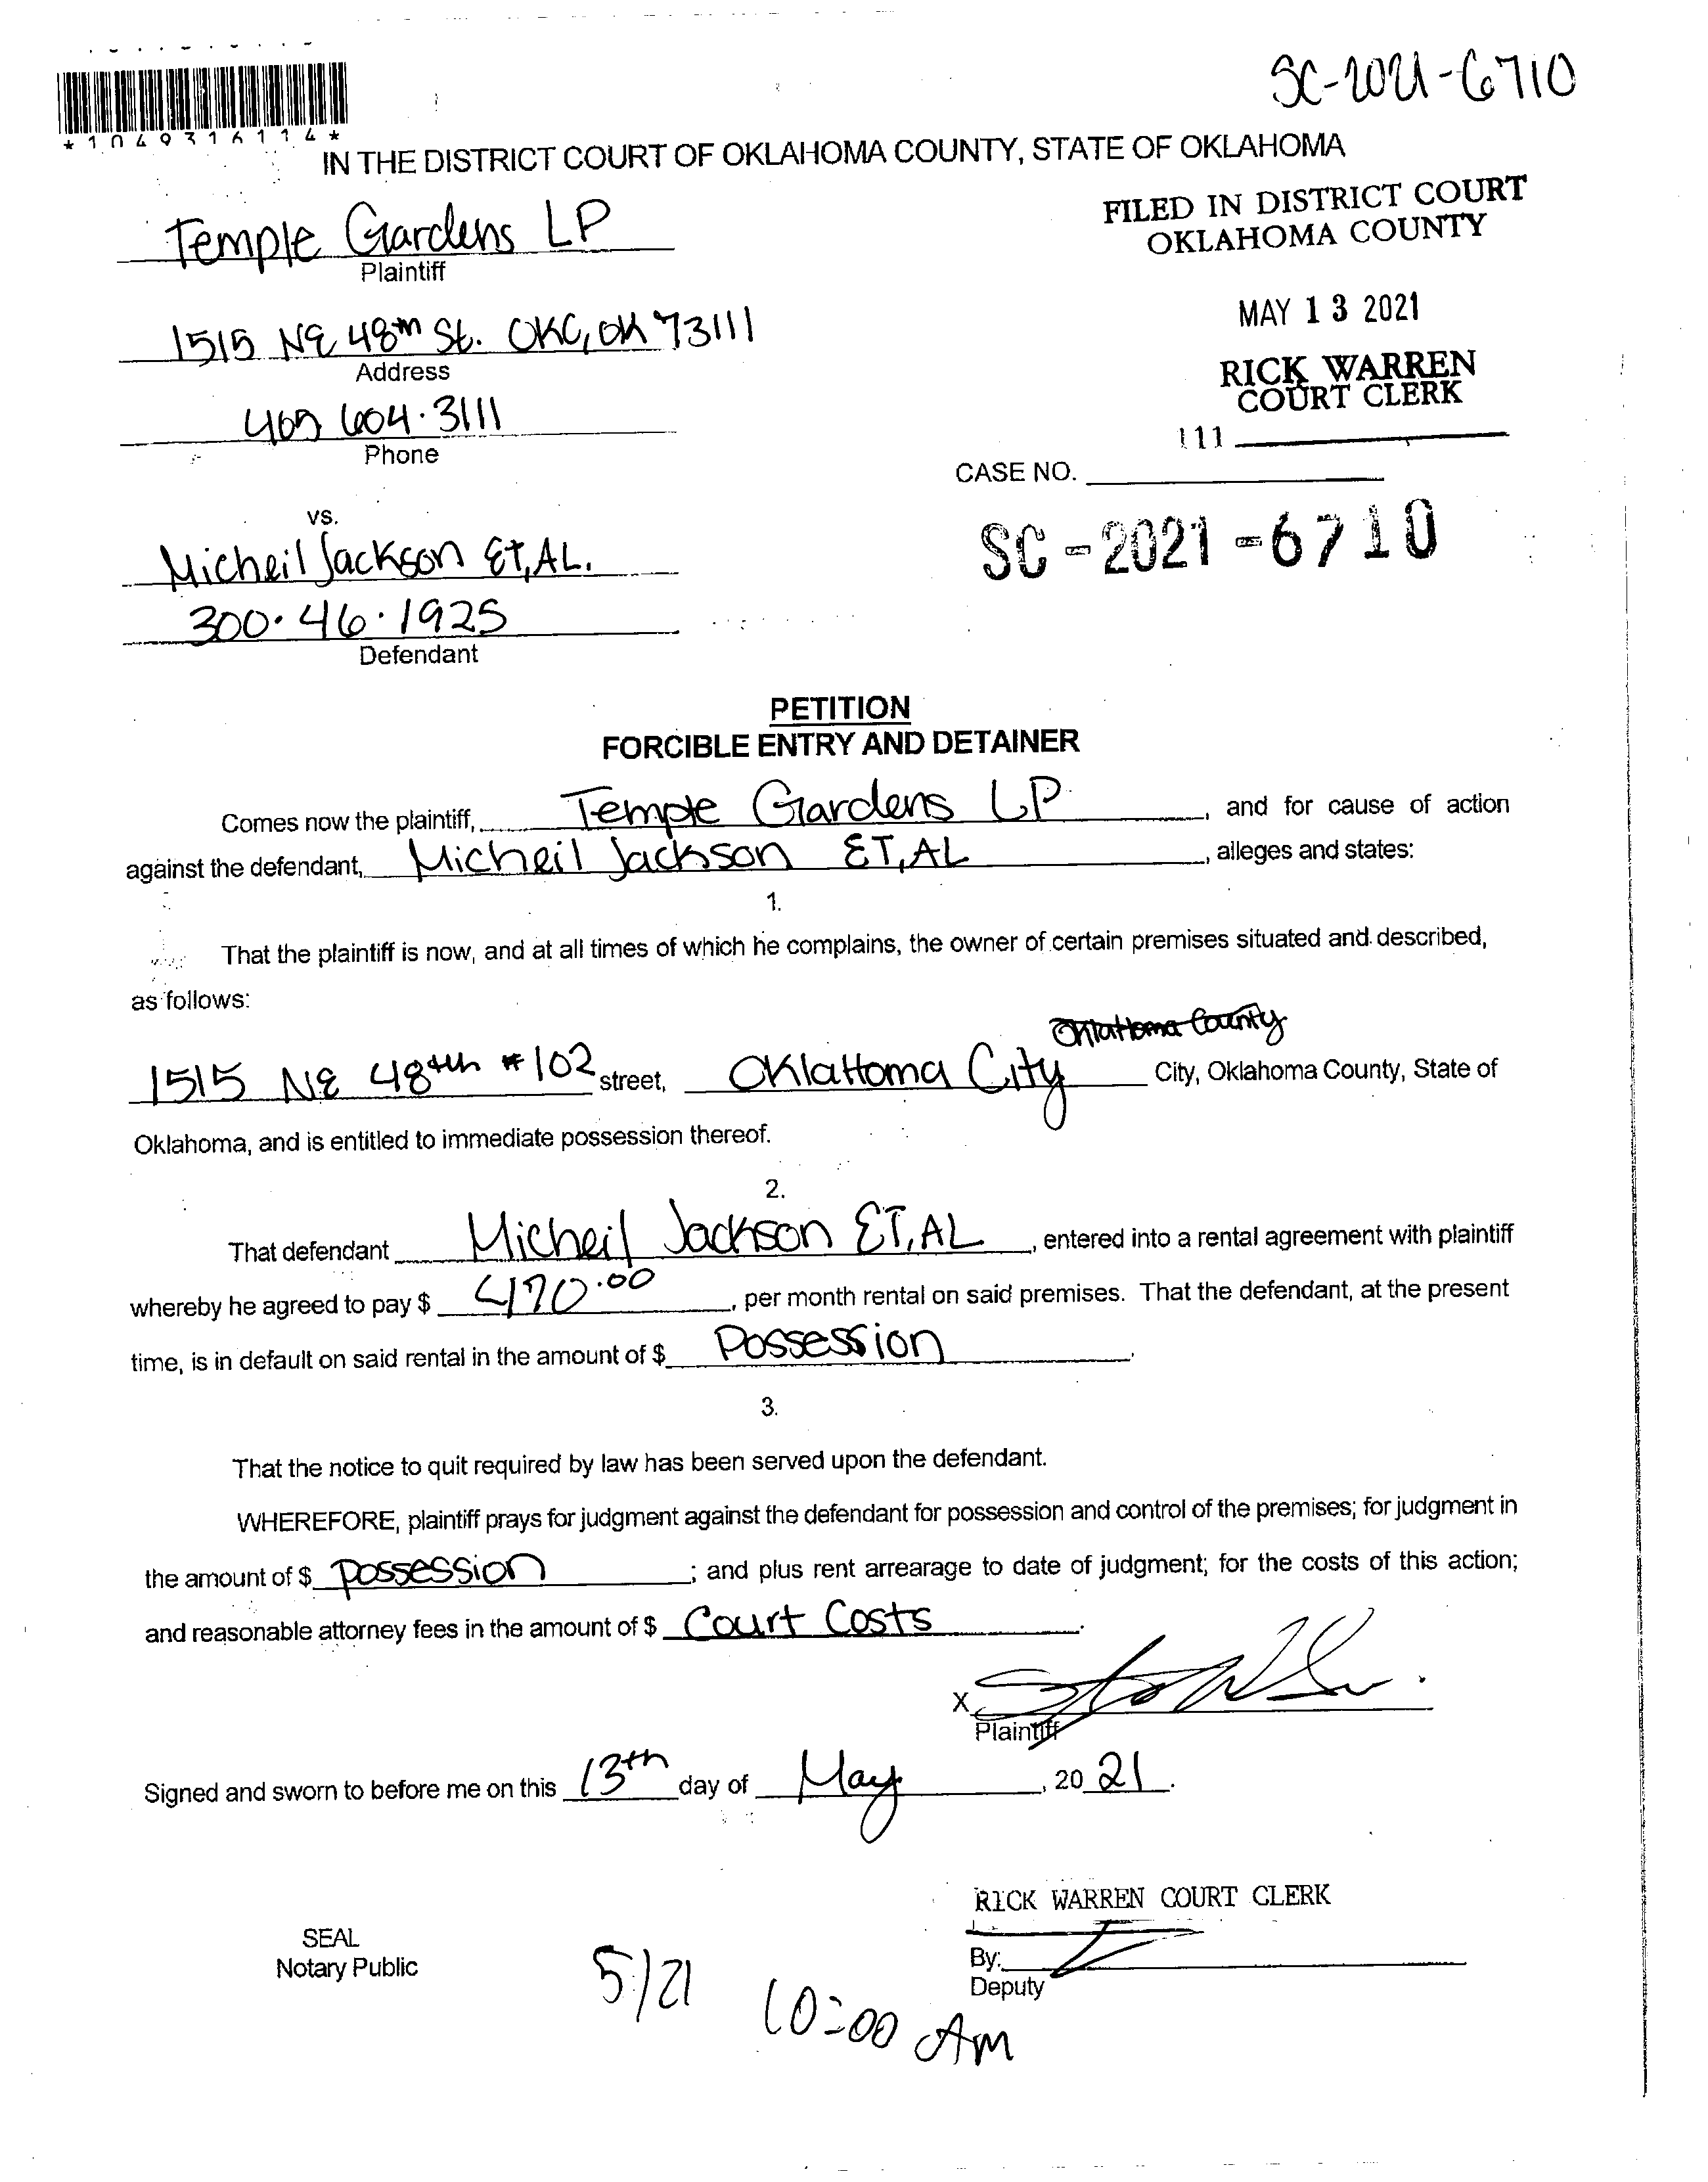 SC-2021-6710
*1049316114*
IN THE DISTRICT COURT OF OKLAHOMA COUNTY, STATE OF OKLAHOMA
FILED IN DISTRICT COURT
OKLAHOMA COUNTY
Temple Gardens LP
Plaintiff
MAY 13 2021
1515 NE 48th St. OKC, OK 73111
Address
RICK WARREN
COURT CLERK
405 604·3111
Phone
111
CASE NO.
SC-2021-6710
vs.
Micheil Jackson ET, AL.
300·46·1925
Defendant
PETITION
FORCIBLE ENTRY AND DETAINER
Comes now the plaintiff, Temple Gardens LP, and for cause of action
against the defendant, Micheil Jackson ET, AL, alleges and states:
1.
That the plaintiff is now, and at all times of which he complains, the owner of certain premises situated and described,
as follows:
Oklahoma County
1515 NE 48th #102 street, Oklahoma City City, Oklahoma County, State of
Oklahoma, and is entitled to immediate possession thereof.
2.
That defendant Micheil Jackson ET, AL, entered into a rental agreement with plaintiff
whereby he agreed to pay $ 470.00, per month rental on said premises. That the defendant, at the present
time, is in default on said rental in the amount of $ Possession.
3.
That the notice to quit required by law has been served upon the defendant.
WHEREFORE, plaintiff prays for judgment against the defendant for possession and control of the premises; for judgment in
the amount of $ possession; and plus rent arrearage to date of judgment; for the costs of this action;
and reasonable attorney fees in the amount of $ Court Costs.
X
Plaintiff
Signed and sworn to before me on this 13th day of May, 2021.
RICK WARREN COURT CLERK
SEAL
Notary Public
By:
Deputy
5/21 10:00 AM